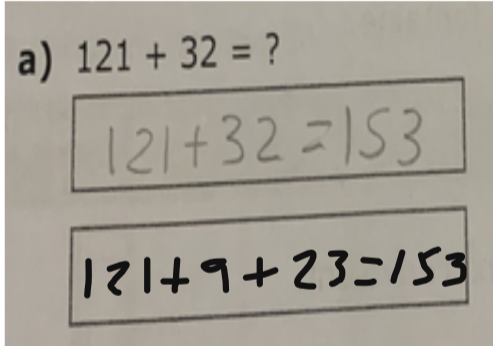 a) 121 + 32 = ?
121+32=153
121+9+23=153